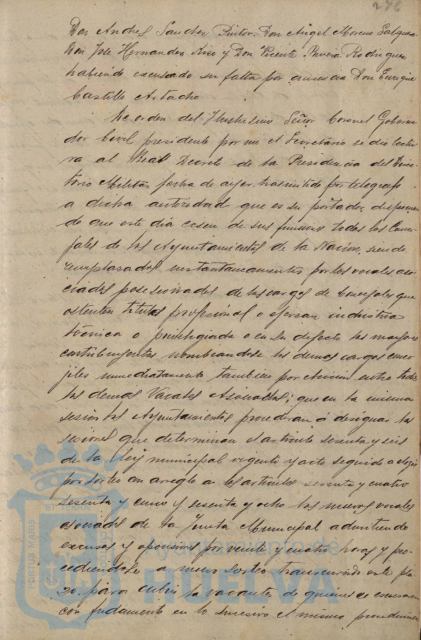 276
Don Andres Sanchez Pintor, Don Angel Moreno Salguero
Don José Hernandez Rico y Don Vicente Rivera Rodriguez
habiendo excusado su falta por ausencia Don Enrique
Castillo Artacho
De orden del Ilustrisimo Señor Coronel Goberna
dor Civil presidente por mi el Secretario se dio lectu
ra al Real Decreto de la Presidencia del Direc
torio Militar fecha de ayer, trasmitido por telegrafo
a dicha autoridad que es su portador, disponien
do que este dia cesen de sus funciones todos los Conce
jales de los Ayuntamientos de la Nacion, siendo
remplazados instantaneamente por los vocales aso
ciados posesionados de los cargos de Concejales que
ostenten titulos profesional o ejerzan industria
tecnica o privilegiada o en su defecto los mayores
contribuyentes nombrandose los demas cargos conce
jiles inmediatamente tambien por eleccion entre todos
los demas Vocales Asociados; que en la misma
sesion los Ayuntamientos procederan á designar las
secciones que determina el articulo sesenta y seis
de la Ley municipal vigente y acto seguido a elegir
por sorteo con arreglo a los articulos sesenta y cuatro
sesenta y cinco y sesenta y ocho los nuevos vocales
asociados de la Junta Municipal admitiendo
excusas y oposiciones por veinte y cuatro horas y pro
cediendose a nuevo sorteo transcurrido este pla
zo para cubrir la vacante de quienes se excusaren
con fundamento en lo sucesivo el mismo procedimien
Ayuntamiento de
HUELVA